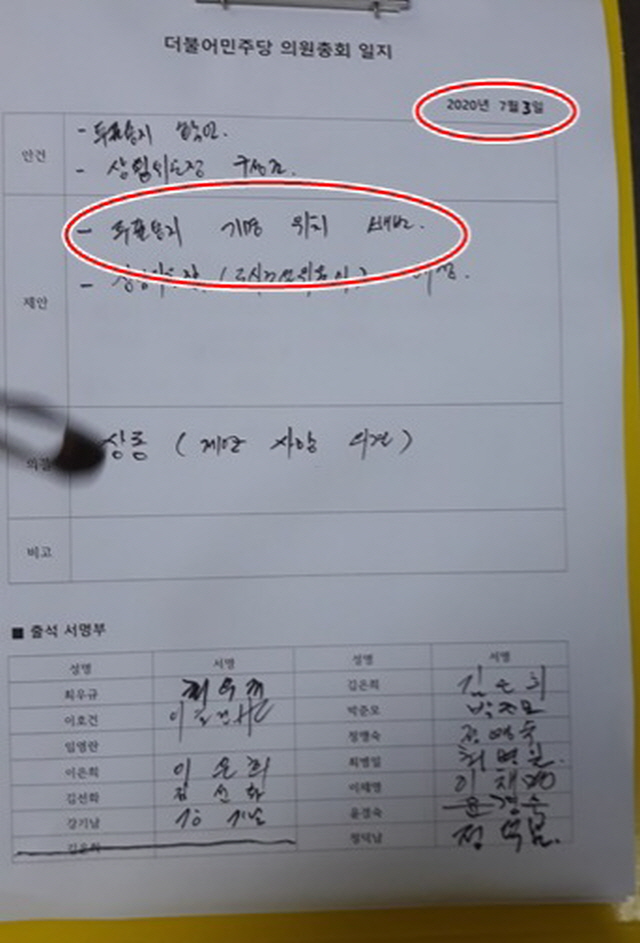 더불어민주당 의원총회 일지
2020년 7월 3일
안건
- 투표용지 확인.
- 상임위원장 구성건.
제안
- 투표용지 기명 위치 배번.
- 상임위원장
의결
상동 (제안 사항 의견)
비고
■ 출석 서명부
성명 서명 성명 서명
최우규 최우규 김은희 김은희
이호건 이호건 박준모 박준모
임영란 정맹숙 정맹숙
이은희 이은희 최병일 최병일
김선화 김선화 이채명 이채명
강기남 강기남 윤경숙 윤경숙
정덕남 정덕남